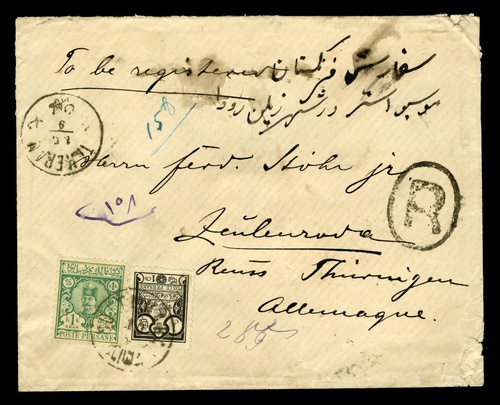 To be registered سفارشی فرنگستان
موسیو استر در شهر زیلن رودا
158
TEHERAN
Herrn Ferd. Stöhr jr.
۱۵۸
R
Zeulenroda
Reuss Thüringen
Allemagne.
285
POSTE PERSANE